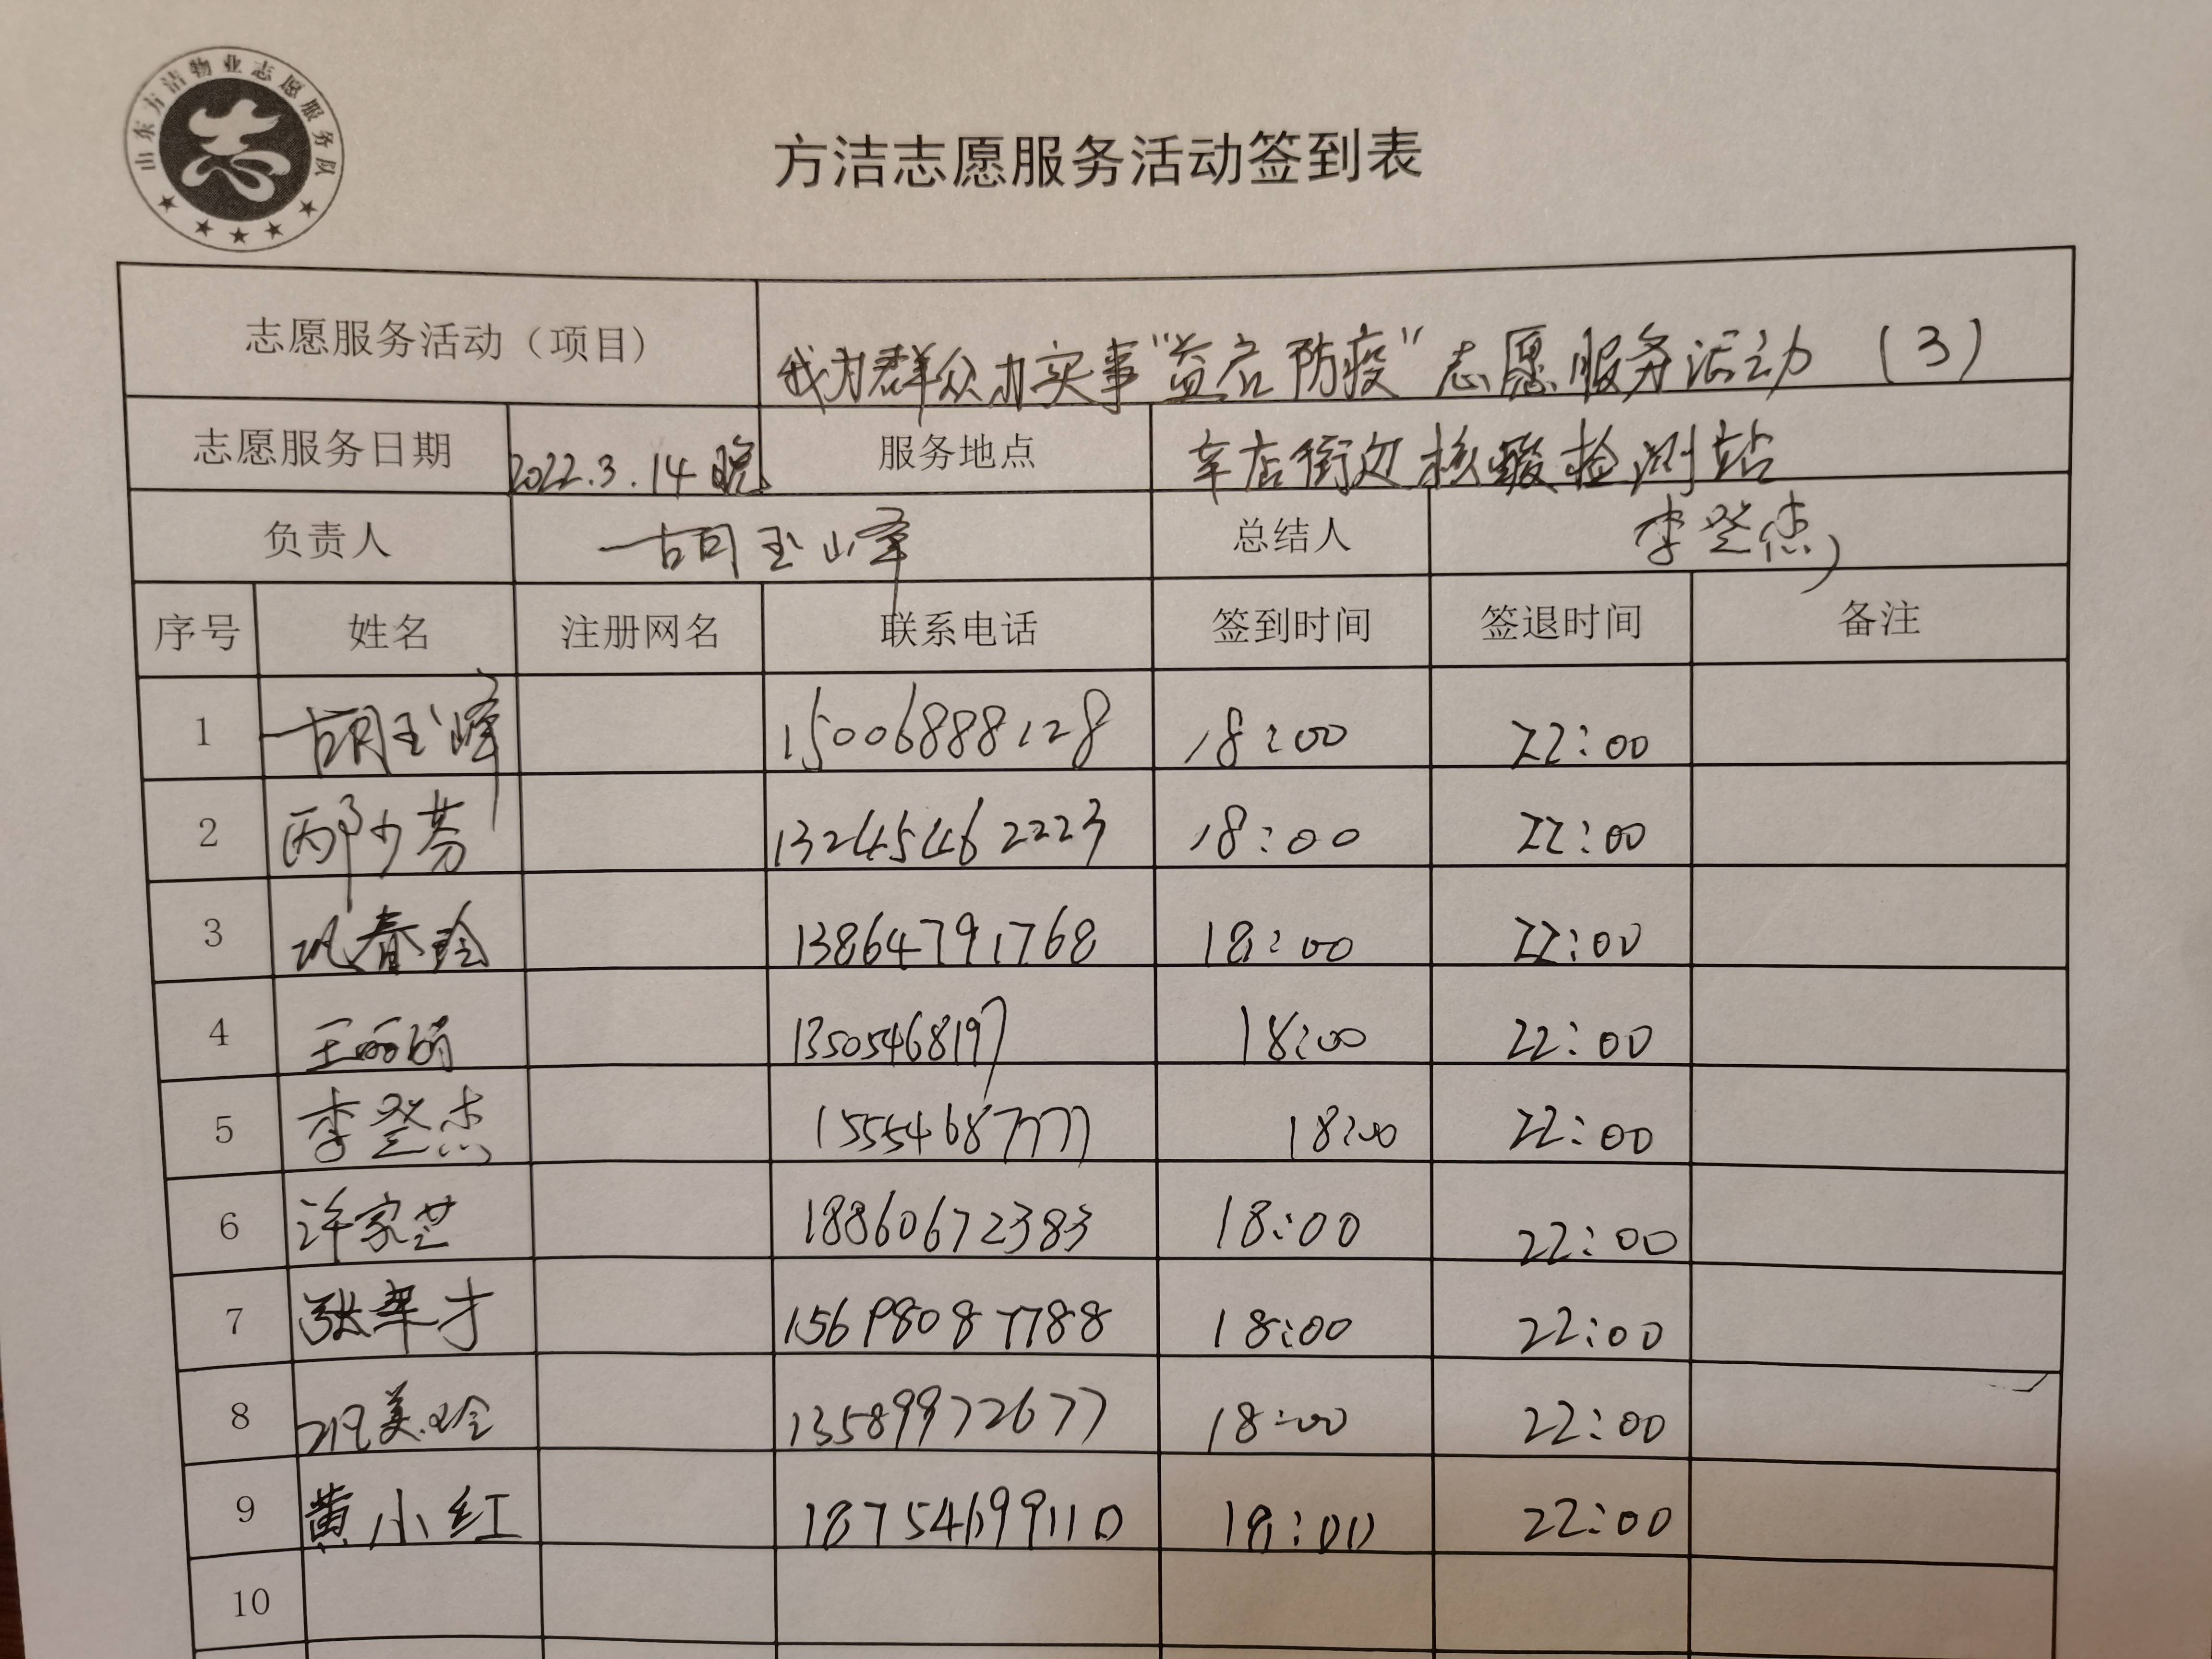 山东方洁物业志愿服务队
方洁志愿服务活动签到表
志愿服务活动（项目） 我为群众办实事“益启防疫”志愿服务活动（3）
志愿服务日期 2022.3.14晚 服务地点 车店街边核酸检测站
负责人 胡玉峰 总结人 李登杰
序号 姓名 注册网名 联系电话 签到时间 签退时间 备注
1 胡玉峰 15006888128 18:00 22:00
2 邴少芬 13245462223 18:00 22:00
3 巩春玲 13864791768 18:00 22:00
4 王丽娟 13505468197 18:00 22:00
5 李登杰 15554687777 18:00 22:00
6 许家芝 18860672383 18:00 22:00
7 张翠才 15698087788 18:00 22:00
8 美玲 13589972677 18:00 22:00
9 黄小红 18754699110 18:00 22:00
10